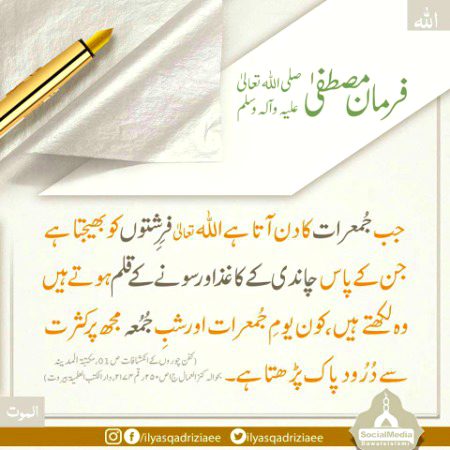 الله
فرمان مصطفیٰ صلی اللہ تعالیٰ
علیہ وآلہ وسلم
جب جُمعرات کا دن آتا ہے اللہ تعالیٰ فِرِشتوں کو بھیجتا ہے
جن کے پاس چاندی کے کاغذ اور سونے کے قلم ہوتے ہیں
وہ لکھتے ہیں، کون یومِ جمعرات اور شبِ جُمُعہ مجھ پر کثرت
سے دُرُود پاک پڑھتا ہے۔
(کفن چوروں کے انکشافات ص 01، مکتبۃ المدینہ
بحوالہ کنز العمال ج اص ۲۵۰ رقم ۲۱۷۴، دار الکتب العلمیۃ بیروت)
الموت
/ilyasqadriziaee /ilyasqadriziaee
SocialMedia
DawateIslami